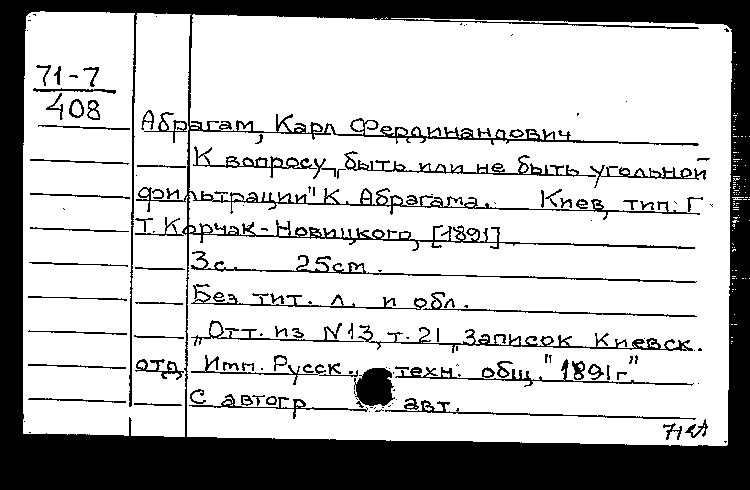 71-7
408
Абрагам, Карл Фердинандович
К вопросу „быть или не быть угольной
фильтрации" К. Абрагама. Киев, тип. Г
Т. Корчак-Новицкого, [1891]
3с. 25см.
Без тит. л. и обл.
„Отт. из N13, т. 21 „Записок Киевск.
отд. Имп. Русск. техн. общ." 1891г."
С автогр. авт.